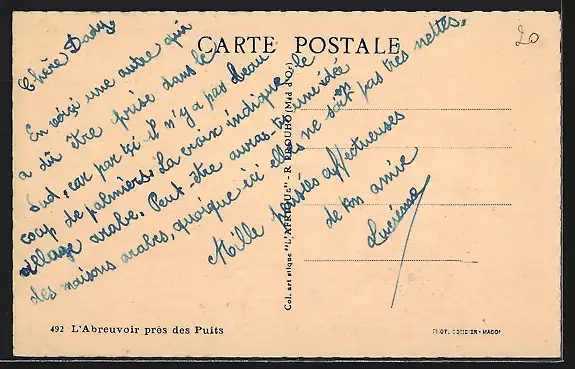 CARTE POSTALE
20
Chère Dady,
En voici une autre qui
a dû être prise dans le
Sud, car par ici il n'y a pas beau
coup de palmiers. La croix indique le
village arabe. Peut-être auras-tu une idée
des maisons arabes, quoique ici elles ne sont pas très nettes.
Mille baisers affectueuses
de ton amie
Lucienne
Col. artistique "L'AFRIQUE" - R. PROUHO (Méd d'Or)
492 L'Abreuvoir près des Puits
PHOT. COMBIER - MACON